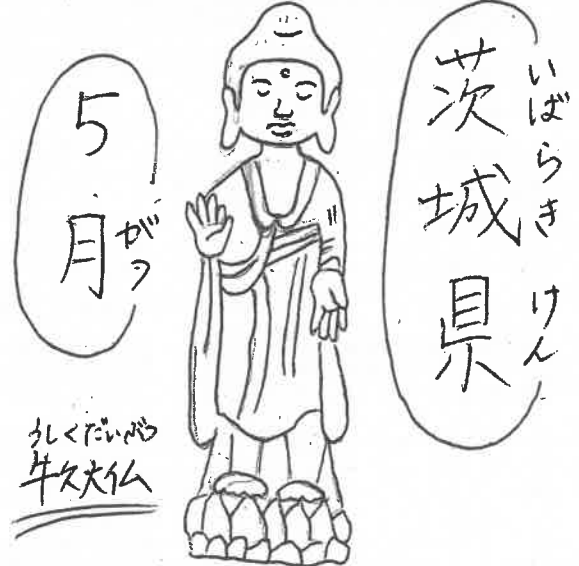 茨城県
いばらき けん
5月
がつ
うしくだいぶつ
牛久大仏